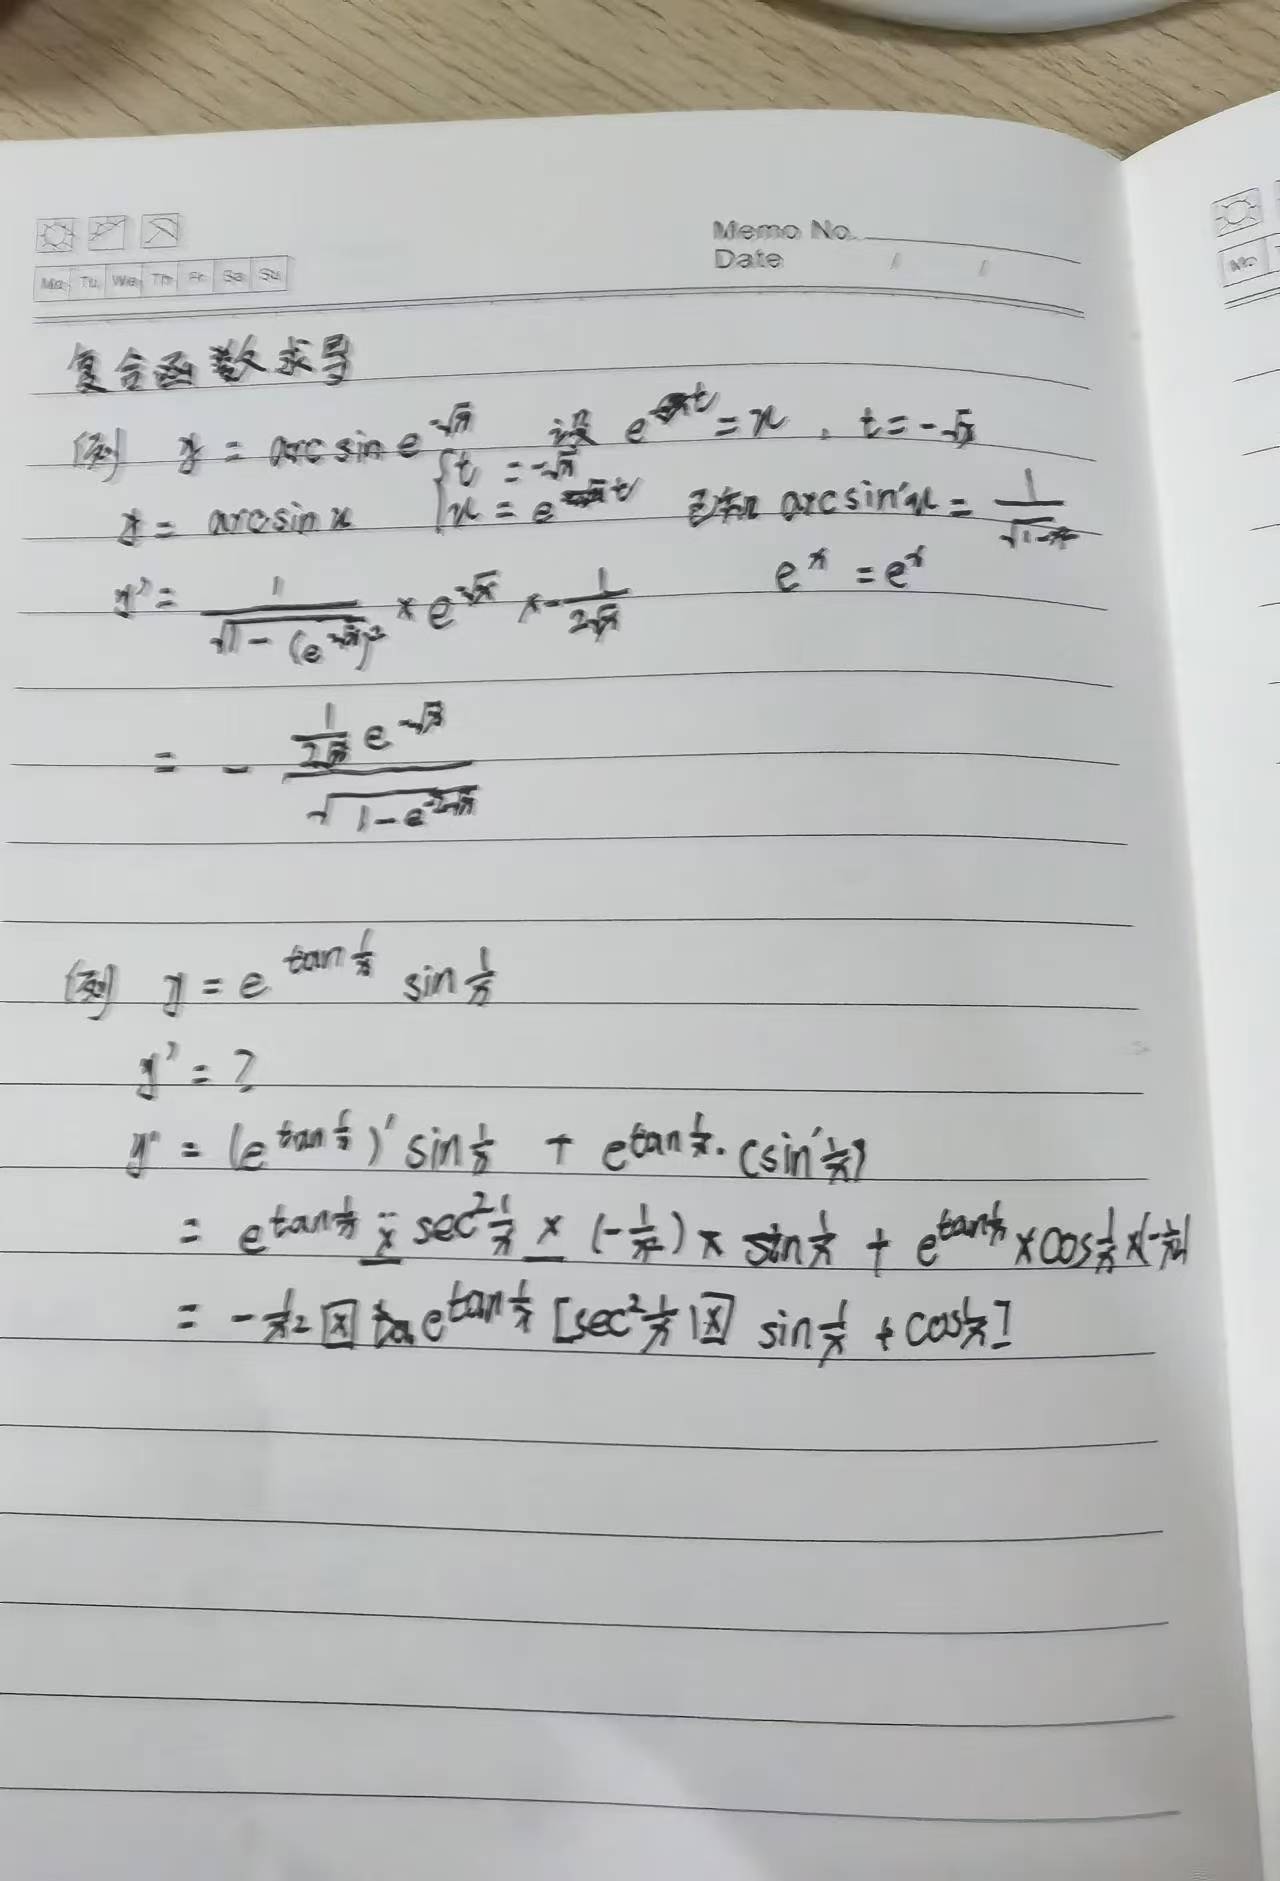 Memo No.
Date / /
Mo Tu We Th Fr Sa Su
复合函数求导
[例] y = arcsin e^{-√x} 设 e^{t} = u , t = -√x
y = arcsin u { t = -√x
u = e^{t} 已知 arcsin'x = 1/√(1-x²)
y' = 1/√(1-(e^{-√x})²) × e^{-√x} × -1/(2√x) e^x = e^x
= - (1/(2√x) e^{-√x})/√(1-e^{-2√x})
[例] y = e^{tan 1/x} sin 1/x
y' = ?
y' = (e^{tan 1/x})' sin 1/x + e^{tan 1/x} · (sin' 1/x)
= e^{tan 1/x} × sec² 1/x × (-1/x²) × sin 1/x + e^{tan 1/x} × cos 1/x × (-1/x²)
= -1/x² [x] e^{tan 1/x} [sec² 1/x [x] sin 1/x + cos 1/x]